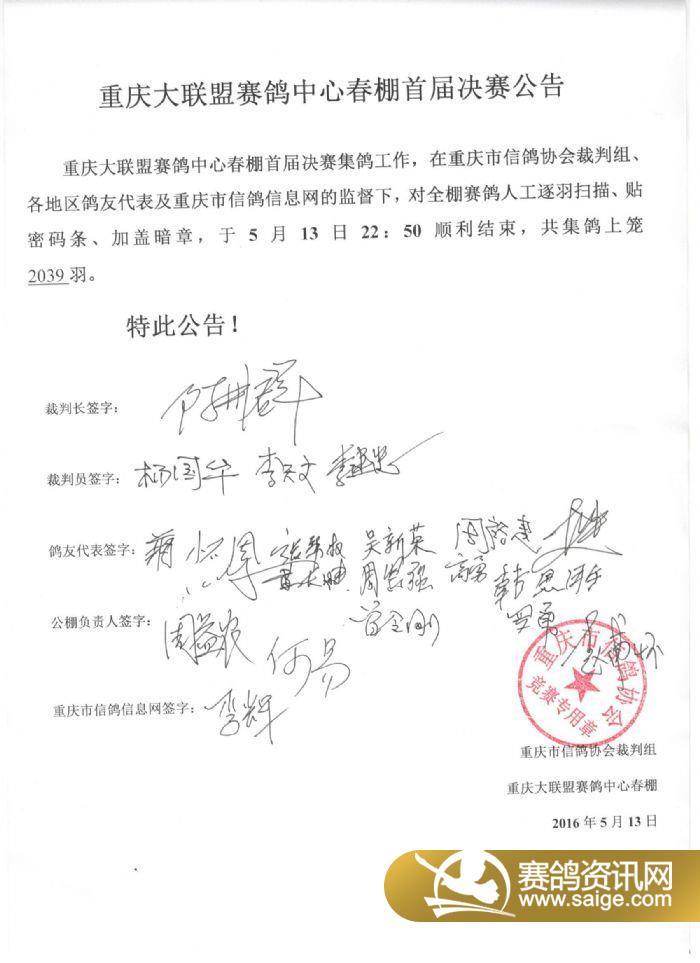 重庆大联盟赛鸽中心春棚首届决赛公告
重庆大联盟赛鸽中心春棚首届决赛集鸽工作，在重庆市信鸽协会裁判组、
各地区鸽友代表及重庆市信鸽信息网的监督下，对全棚赛鸽人工逐羽扫描、贴
密码条、加盖暗章，于 5 月 13 日 22：50 顺利结束，共集鸽上笼
2039 羽。
特此公告！
裁判长签字：
裁判员签字：杨国华 李天文
鸽友代表签字：蒋 吴新英
周
公棚负责人签字：周益农 曾全刚 罗勇
何易
重庆市信鸽信息网签字：李辉
重庆市信鸽协会
竞赛专用章
重庆市信鸽协会裁判组
重庆大联盟赛鸽中心春棚
2016 年 5 月 13 日
赛鸽资讯网
www.saige.com